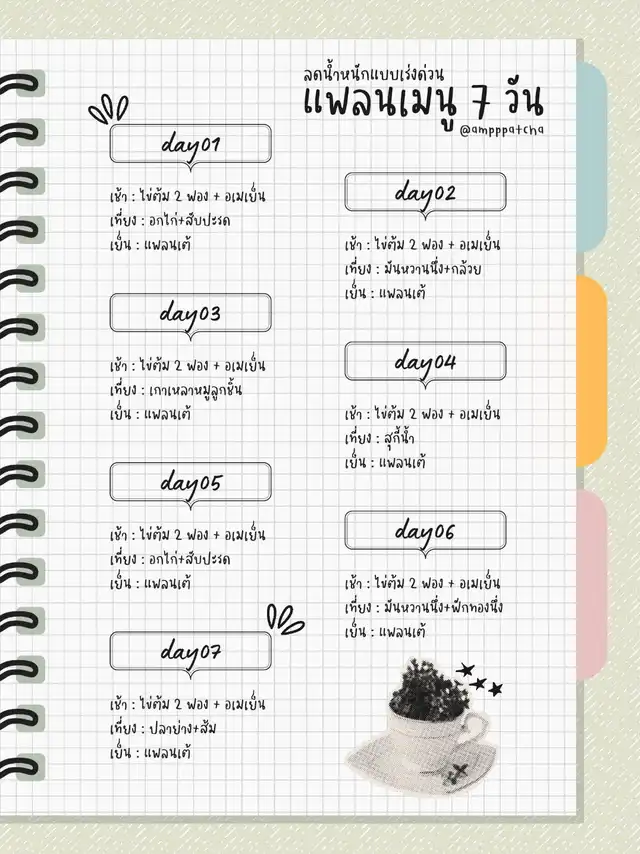 ลดน้ำหนักแบบเร่งด่วน
แพลนเมนู 7 วัน
@ampppatcha
day01
เช้า : ไข่ต้ม 2 ฟอง + อเมเย็น
เที่ยง : อกไก่+สับปะรด
เย็น : แพลนเต้
day02
เช้า : ไข่ต้ม 2 ฟอง + อเมเย็น
เที่ยง : มันหวานนึ่ง+กล้วย
เย็น : แพลนเต้
day03
เช้า : ไข่ต้ม 2 ฟอง + อเมเย็น
เที่ยง : เกาเหลาหมูลูกชิ้น
เย็น : แพลนเต้
day04
เช้า : ไข่ต้ม 2 ฟอง + อเมเย็น
เที่ยง : สุกี้น้ำ
เย็น : แพลนเต้
day05
เช้า : ไข่ต้ม 2 ฟอง + อเมเย็น
เที่ยง : อกไก่+สับปะรด
เย็น : แพลนเต้
day06
เช้า : ไข่ต้ม 2 ฟอง + อเมเย็น
เที่ยง : มันหวานนึ่ง+ฟักทองนึ่ง
เย็น : แพลนเต้
day07
เช้า : ไข่ต้ม 2 ฟอง + อเมเย็น
เที่ยง : ปลาย่าง+ส้ม
เย็น : แพลนเต้